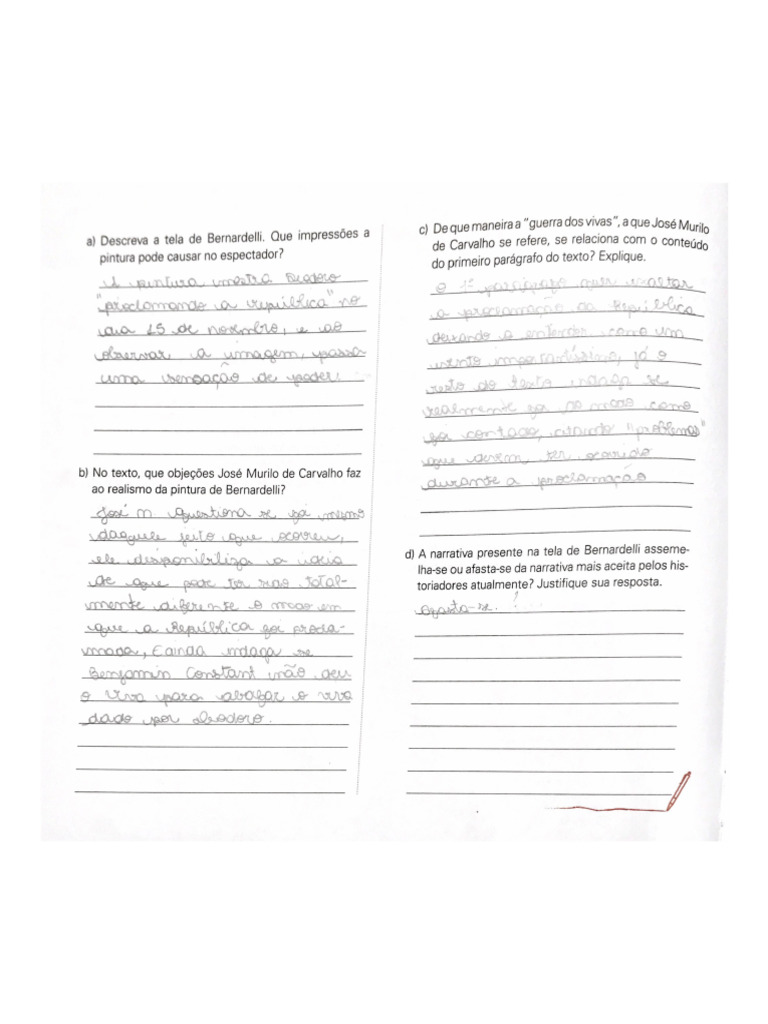 a) Descreva a tela de Bernardelli. Que impressões a
pintura pode causar no espectador?
A pintura mostra Deodoro
"proclamando a república" no
dia 15 de novembro, e ao
observar a imagem, passa
uma sensação de poder.
b) No texto, que objeções José Murilo de Carvalho faz
ao realismo da pintura de Bernardelli?
José M. questiona se foi mesmo
daquele jeito que ocorreu,
ele disponibiliza a ideia
de que pode ter sido total-
mente diferente o modo em
que a República foi procla-
mada, E ainda indaga se
Benjamin Constant não deu
o viva para abafar o viva
dado por Deodoro.
c) De que maneira a "guerra dos vivas", a que José Murilo
de Carvalho se refere, se relaciona com o conteúdo
do primeiro parágrafo do texto? Explique.
O 1º parágrafo quer exaltar
a proclamação da República
deixando a entender como um
evento importantíssimo, já o
resto do texto indaga se
realmente foi do modo como
foi contado, citando "problemas"
que devem ter ocorrido
durante a proclamação
d) A narrativa presente na tela de Bernardelli asseme-
lha-se ou afasta-se da narrativa mais aceita pelos his-
toriadores atualmente? Justifique sua resposta.
Afasta-se.